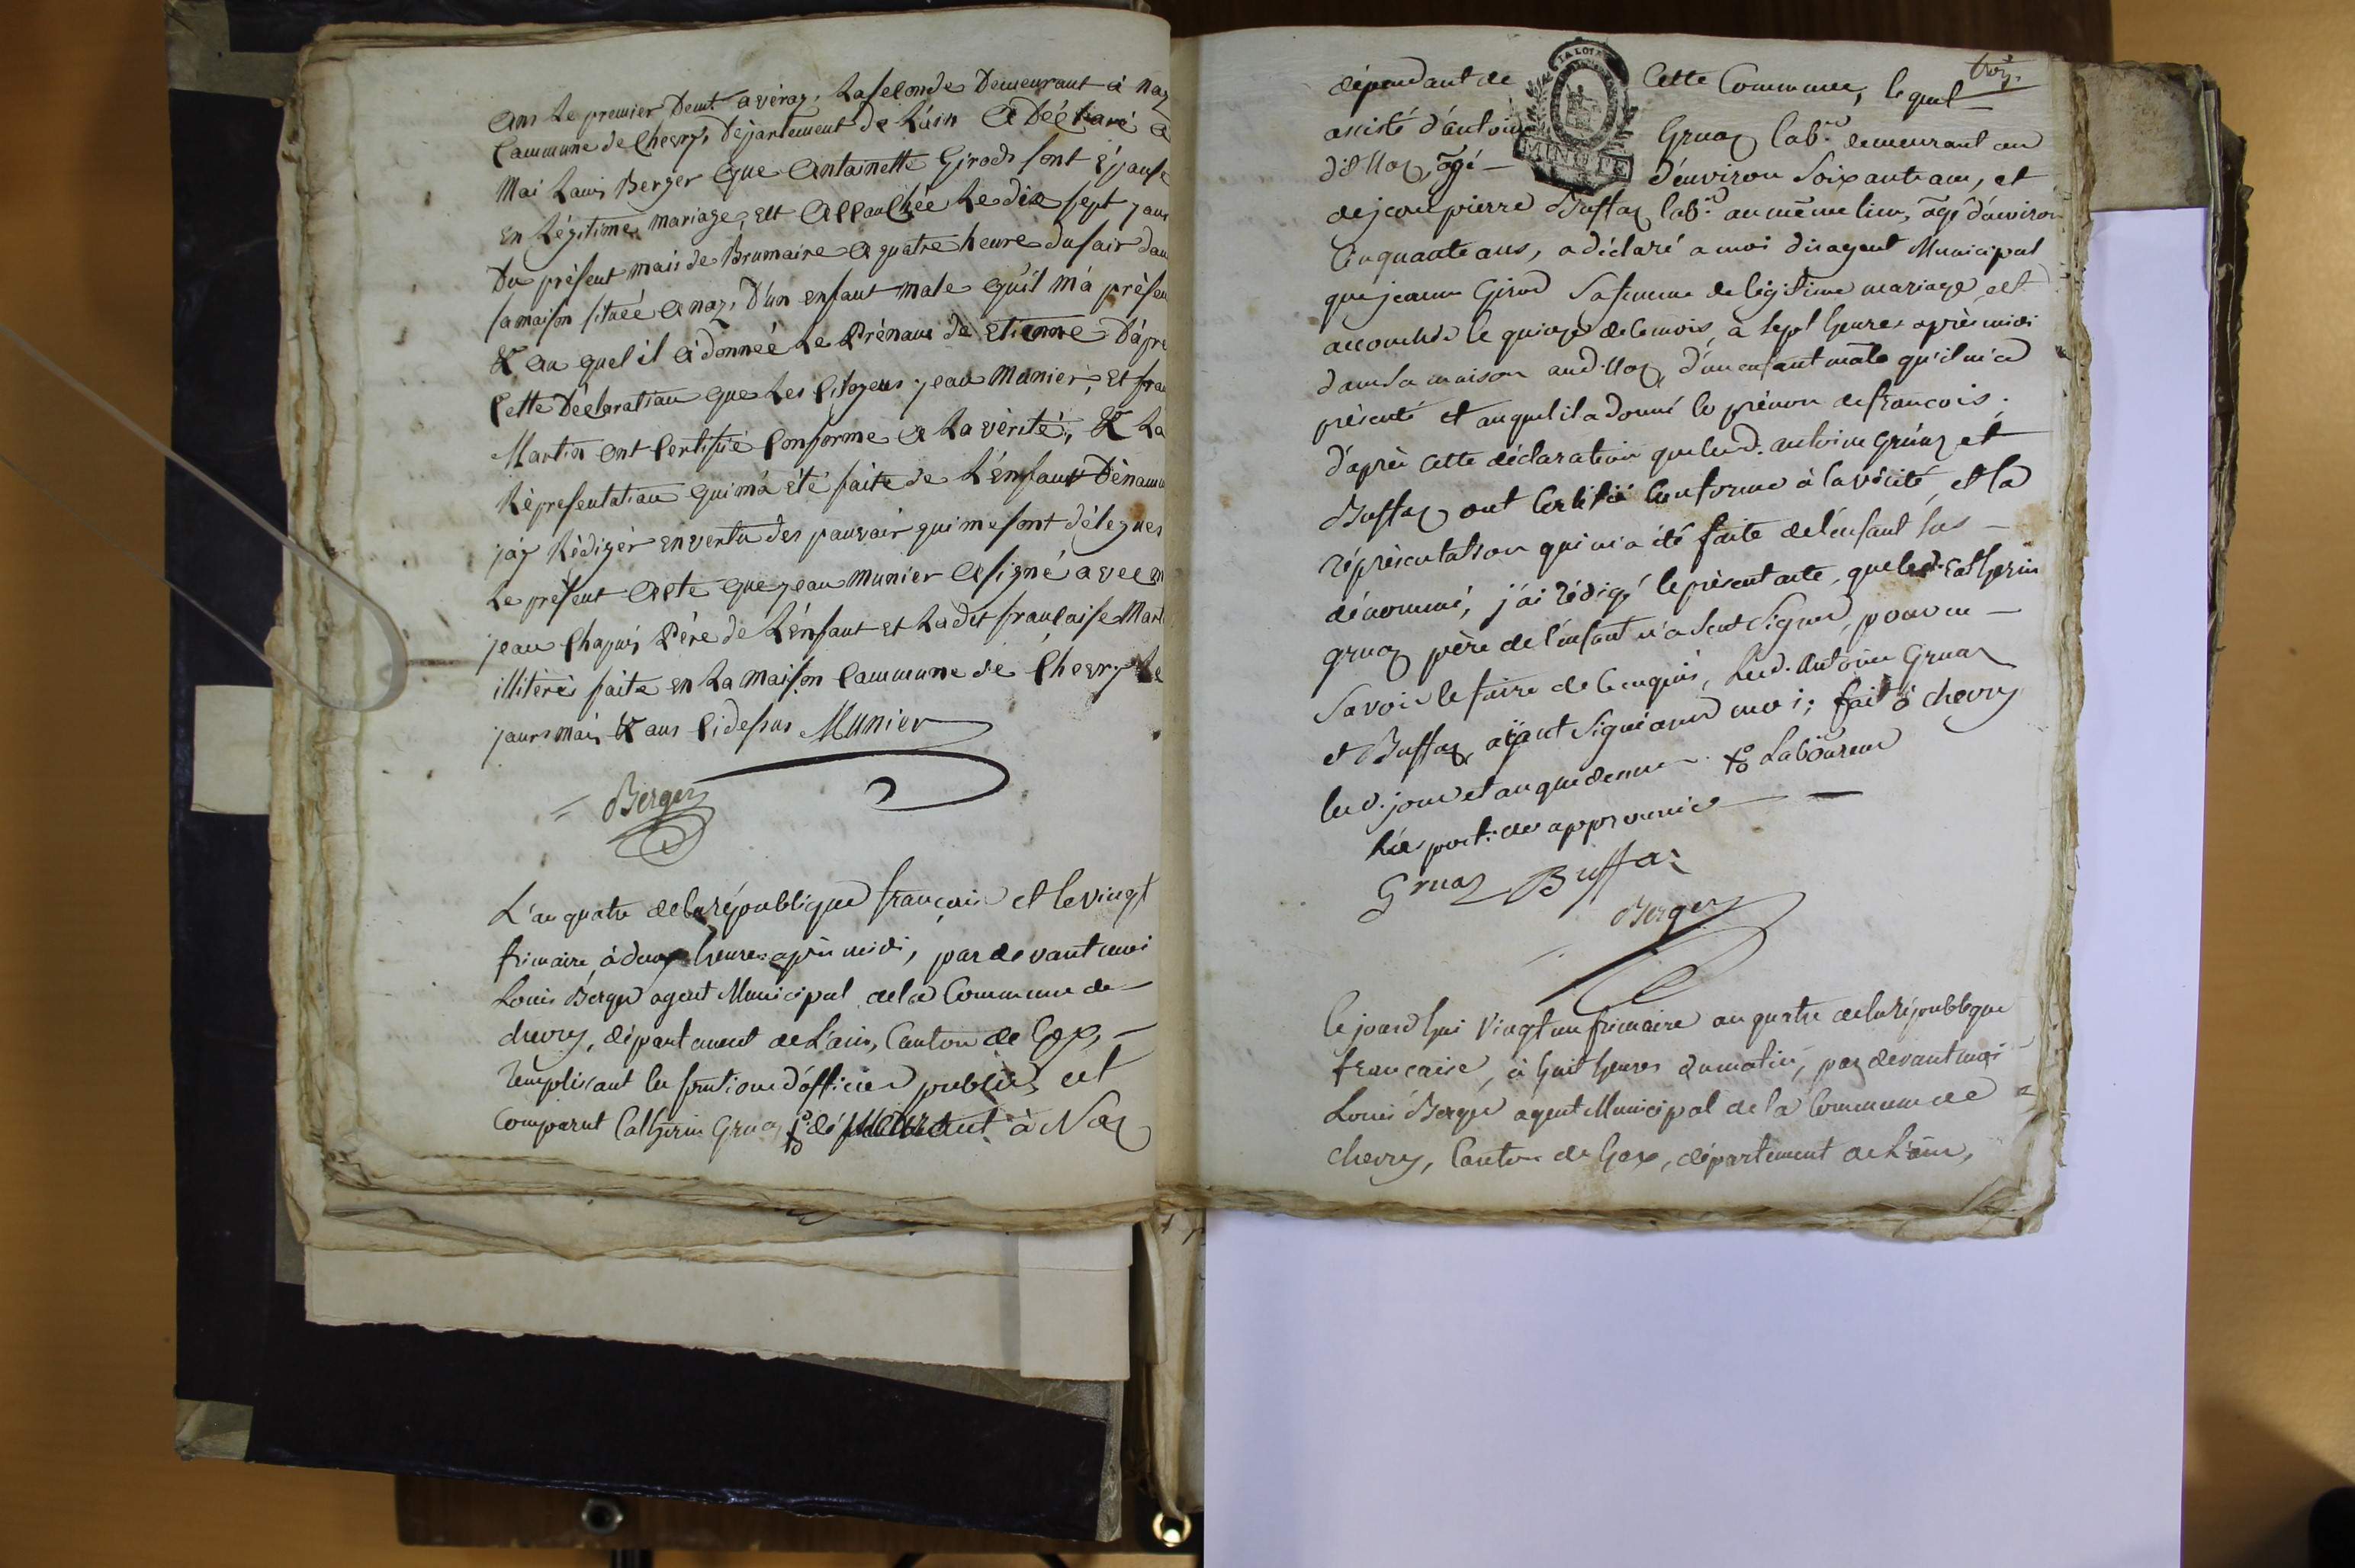 ans le premier demt. a véraz, la seconde demeurant à naz
Commune de Chevry, Département de l'ain a Déclaré a
Moi Louis Berger que Antoinette Girods sont Epouse
en légitime mariage, est accouchée le dix sept jour
Du présent mois de Brumaire a quatre heure du soir dan
sa maison située a naz, D'un enfant male qu'il m'a présen
& au quel il à donneé le Prénom de Etienne D'àpre
Cette Déclaration que les Citoyens jean Munier, et fran
Martin ont Certifié Conforme a la vérité, & la
Répresentation qui m'a été faite de l'enfant Dénomm
j'ay Rédiger en vertu des pouvoir qui me sont délegues
le présent acte que jean Munier a signé avec m
jean Chapuis Père de l'enfant et ladit françoise Mart
illiterés faite en la maison Commune de Chevry le
jours mois & ans Cidessus Munier
Berger
L'an quatre de la république françoise et le vingt
frimaire, à deux heures après midi, par devant moi
Louis Berger agent Municipal de la Commune de
chevry, département de L'ain, Canton de Gex,
remplissant les fonctions d'officier public, est
Comparut Catherin Gruaz à Naz
trois.
dépendant de Cette Commune, lequel
assisté d'antoine Gruaz lab.r demeurant au
dit Naz, âgé d'environ Soixante ans, et
LA LOI
MINUTE
de jean pierre Buffaz lab.r au même lieu, âgé d'environ
Cinquante ans, a déclaré a moi dit agent Municipal
que jeanne Girod sa femme de légitime mariage, est
accouchée le quinze de ce mois, à sept heures après midi
dans sa maison aud. Naz, d'un enfant mâle qu'il m'a
présenté et auquel il a donné le prénom de françois;
d'après cette déclaration que lesd. antoine Gruaz et
Buffaz ont Certifié Conforme à la vérité, et la
réprésentation qui m'a été faite de l'enfant sus
dénommé, j'ai rédigé le présent acte, que led. Catherin
gruaz père de l'enfant n'a Sçut Signer, pour ne
Savoir le faire de ce requis, Lesd. Antoine Gruaz
et Buffaz, ayant Signé avec moi; fait à chevry
lesd. jour et an que dessus Laboureur
approuvée
Gruaz Buffaz
Berger
Cejourd'hui Vingt un frimaire an quatre de la république
française, à huit heures du matin, par devant moi
Louis Berger agent Municipal de la Commune de
chevry, Canton de Gex, département de L'ain,